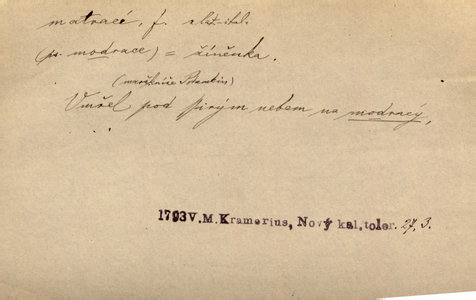 matrací, f. zlat.-ital.
(ps. modrace) = žíněnka.
(marškníže Potemkin)
Umřel pod širým nebem na modracý,
1793 V.M.Kramerius, Nový kal.toler. 27, 3.